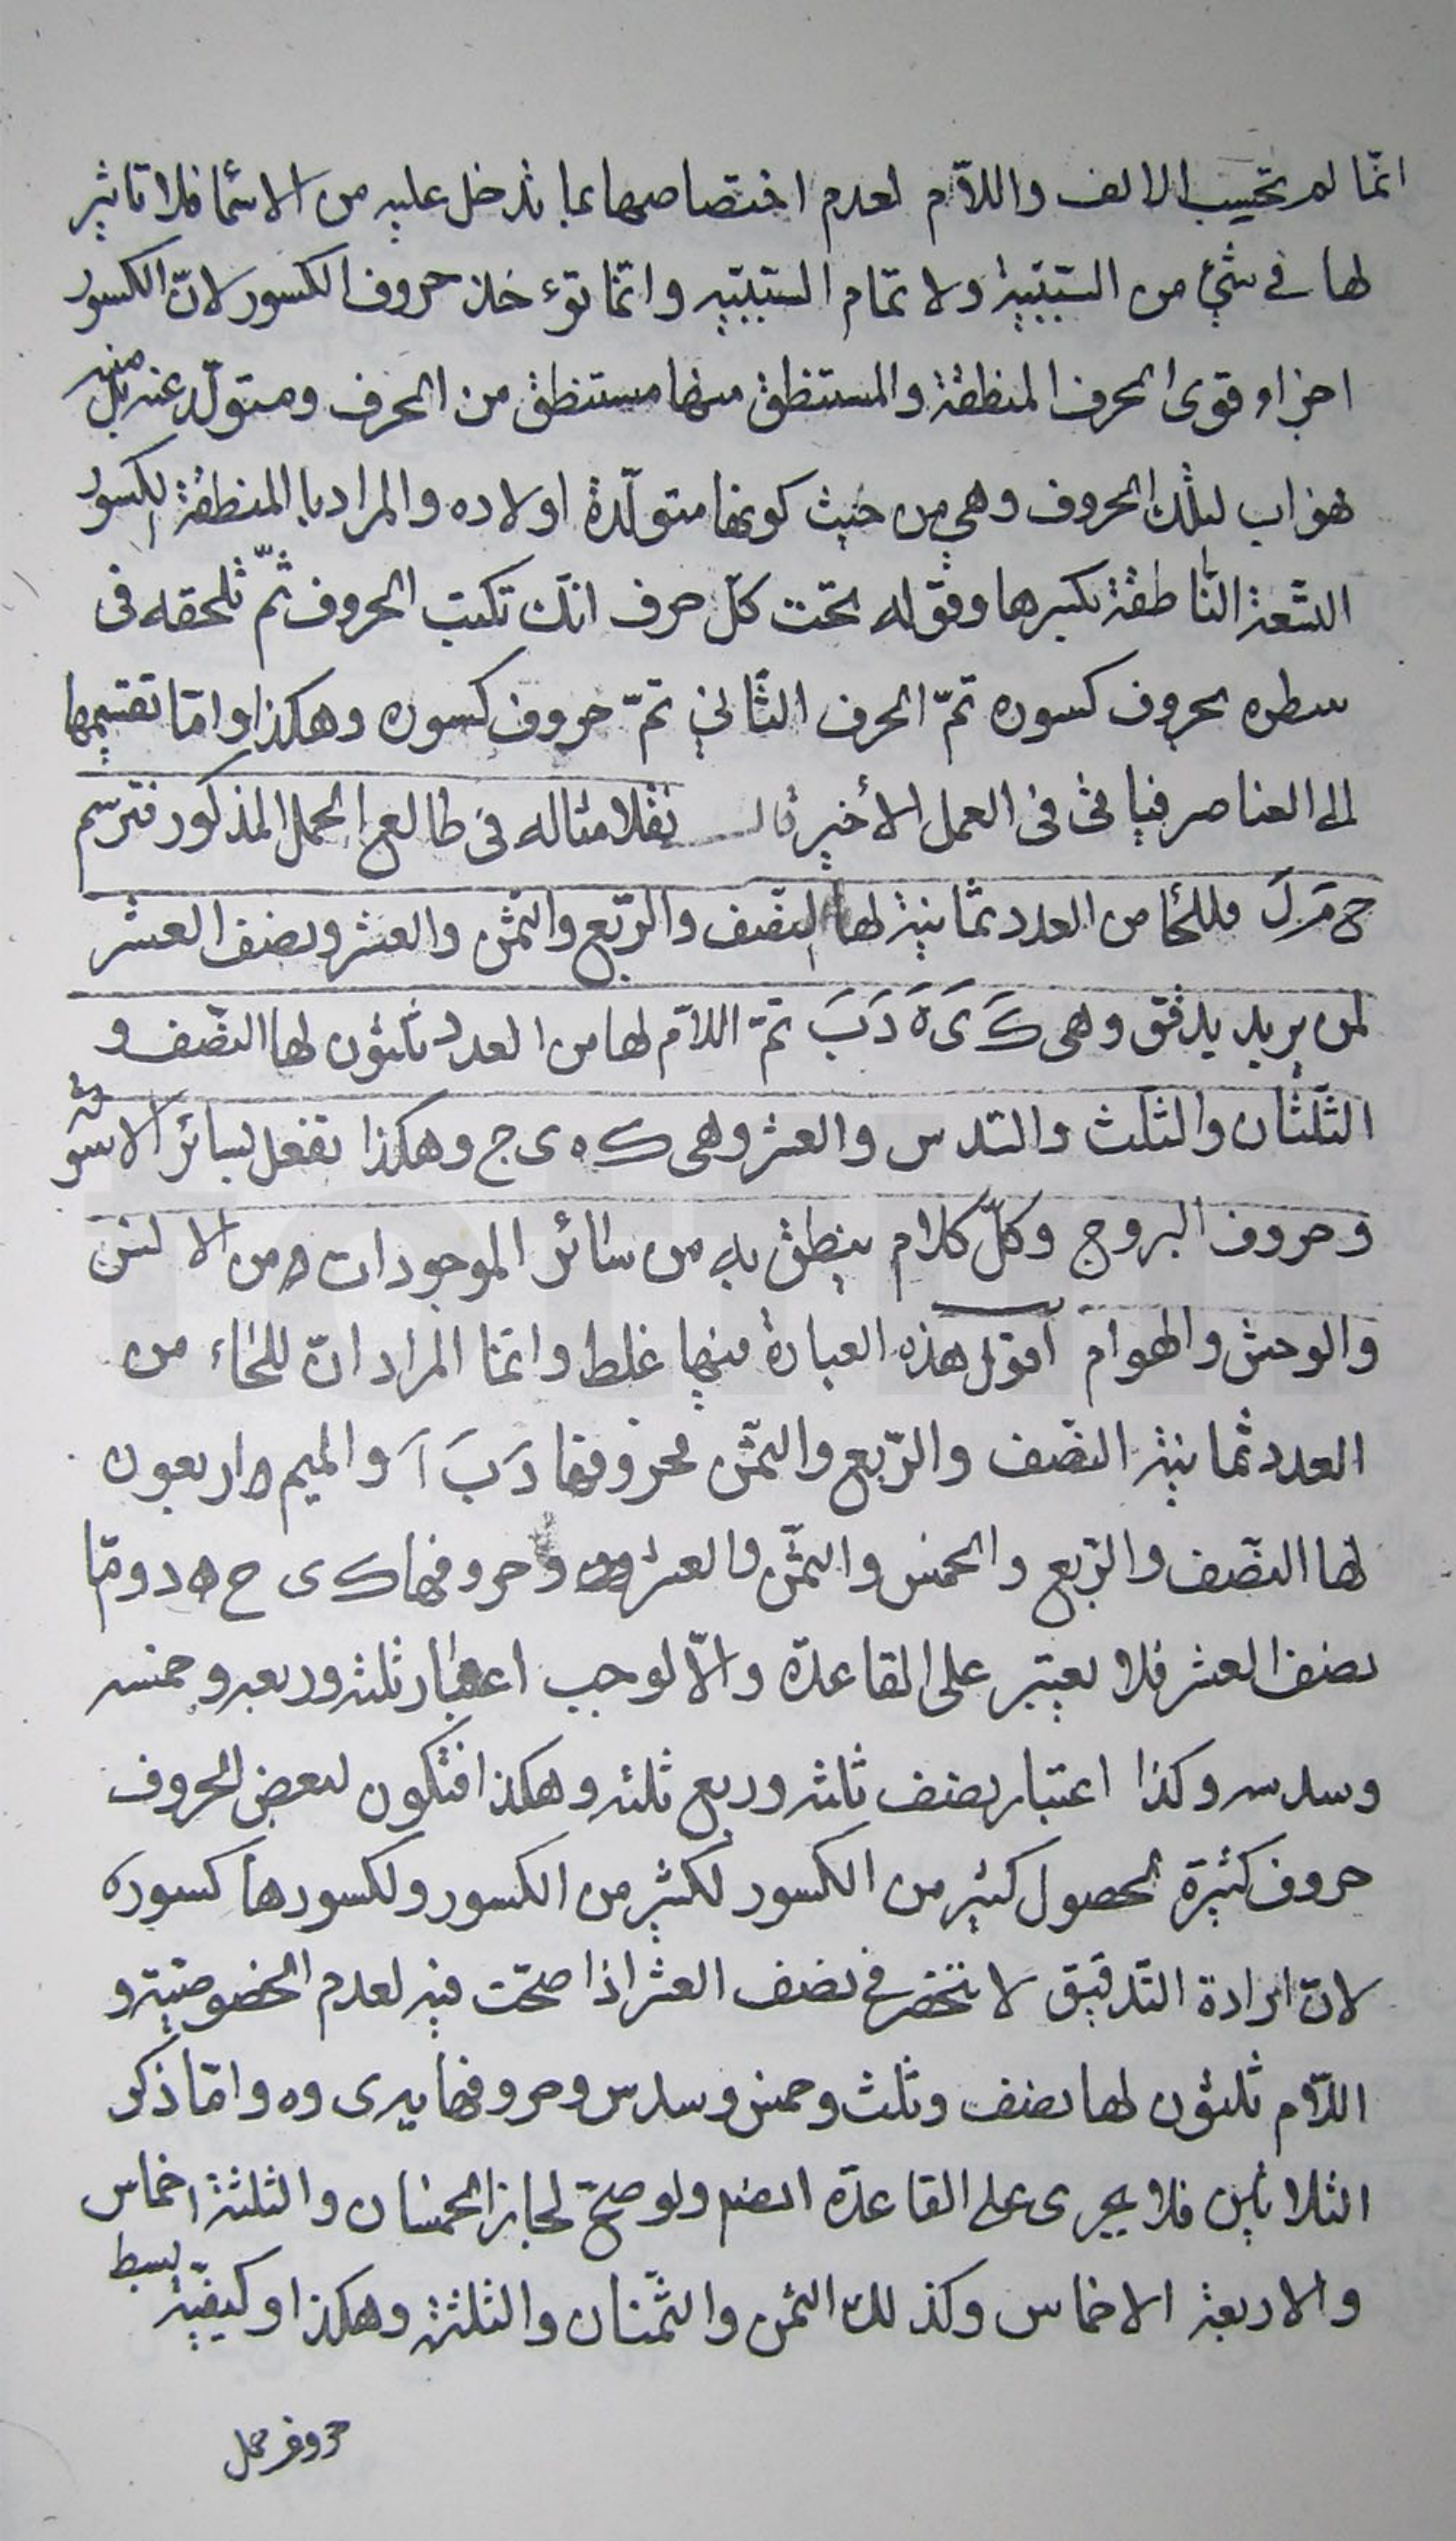 انّما لم تحسب الالف واللّام لعدم اختصاصها بما تدخل عليه من الاسمآ فلا تاثير
لها فى شئ من السّببيّة ولا تمام السّببيّة وانّما تؤخذ حروف الكسور لانّ الكسور
اجزاء وقوى الحرف المنطقة والمستنطق منها مستنطق من الحرف ومتولّد عنه بل منه
فهو اب لتلك الحروف وهي من حيث كونها متولّدة اولاده والمراد با المنطقة الكسور
التّسعة النّاطقة بكسرها وقوله تحت كلّ حرف انّك تكتب الحروف ثمّ تلحقه فى
سطره بحروف كسوره ثمّ الحرف الثّاني ثمّ حروف كسوره وهكذا وامّا تقسيمها
الى العناصر فيأتى فى العمل الأخير قال نقلا مثاله فى طالع الحمل المذكور فترسم
ح مَ لَ فللحآ من العدد ثمانية لها النّصف والرّبع والثّمن والعشر ونصف العشر
لمن يريد يدقّق وهى كَ ىَ هَ دَ بَ ثمّ اللّام لها من العدد ثلثون لها النّصف و
الثّلثان والثّلث والسّدس والعشر وهى ك ه ى ج وهكذا تفعل بسائر الاسمآ
وحروف البروج وكلّ كلام ينطق به من سائر الموجودات ومن الانس
والوحش والهوام اقول هذه العبارة فيها غلط وانّما المراد انّ للحاء من
العدد ثمانية النّصف والرّبع والثّمن فحروفها دَ بَ آَ والميم اربعون
لها النّصف والرّبع والخمس والثّمن والعشر وحروفها ك ى ح ه د وامّا
نصف العشر فلا يعتبر على القاعدة والّا لوجب اعتبار ثلثه وربعه وخمسه
وسدسه وكذا اعتبار نصف ثلثه وربع ثلثه وهكذا فتكون لبعض الحروف
حروف كثيرة لحصول كثير من الكسور لكثير من الكسور ولكسورها كسوره
لانّ ارادة التّدقيق لا تنحصر فى نصف العشر اذا صحّت فيه لعدم الخصوصيّة و
اللّام ثلثون لها نصف وثلث وخمس وسدس وحروفها يه ى و ه وامّا ذكر
الثلاثين فلا يجرى على القاعدة ولو صحّ لجاز الخمسان والثلثة اخماس
والاربعة الاخماس وكذلك الثمن والثّمنان والثلثة وهكذا وكيفيّة بسط
حروف حمل